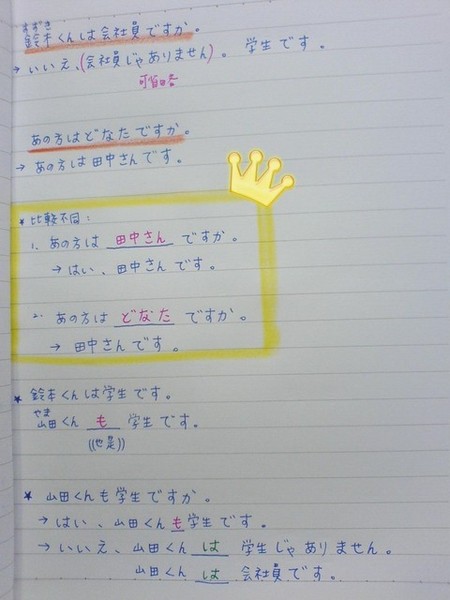 すずき
鈴木くんは会社員ですか。
→ いいえ、(会社員じゃありません)。 学生です。
可省略
あの方はどなたですか。
→ あの方は田中さんです。
* 比較不同:
1. あの方は 田中さん ですか。
→ はい、田中さんです。
2. あの方は どなた ですか。
→ 田中さんです。
★ 鈴木くんは学生です。
やま
山田くん も 学生です。
((也是))
★ 山田くんも学生ですか。
→ はい、山田くんも学生です。
→ いいえ、山田くん は 学生じゃありません。
山田くん は 会社員です。